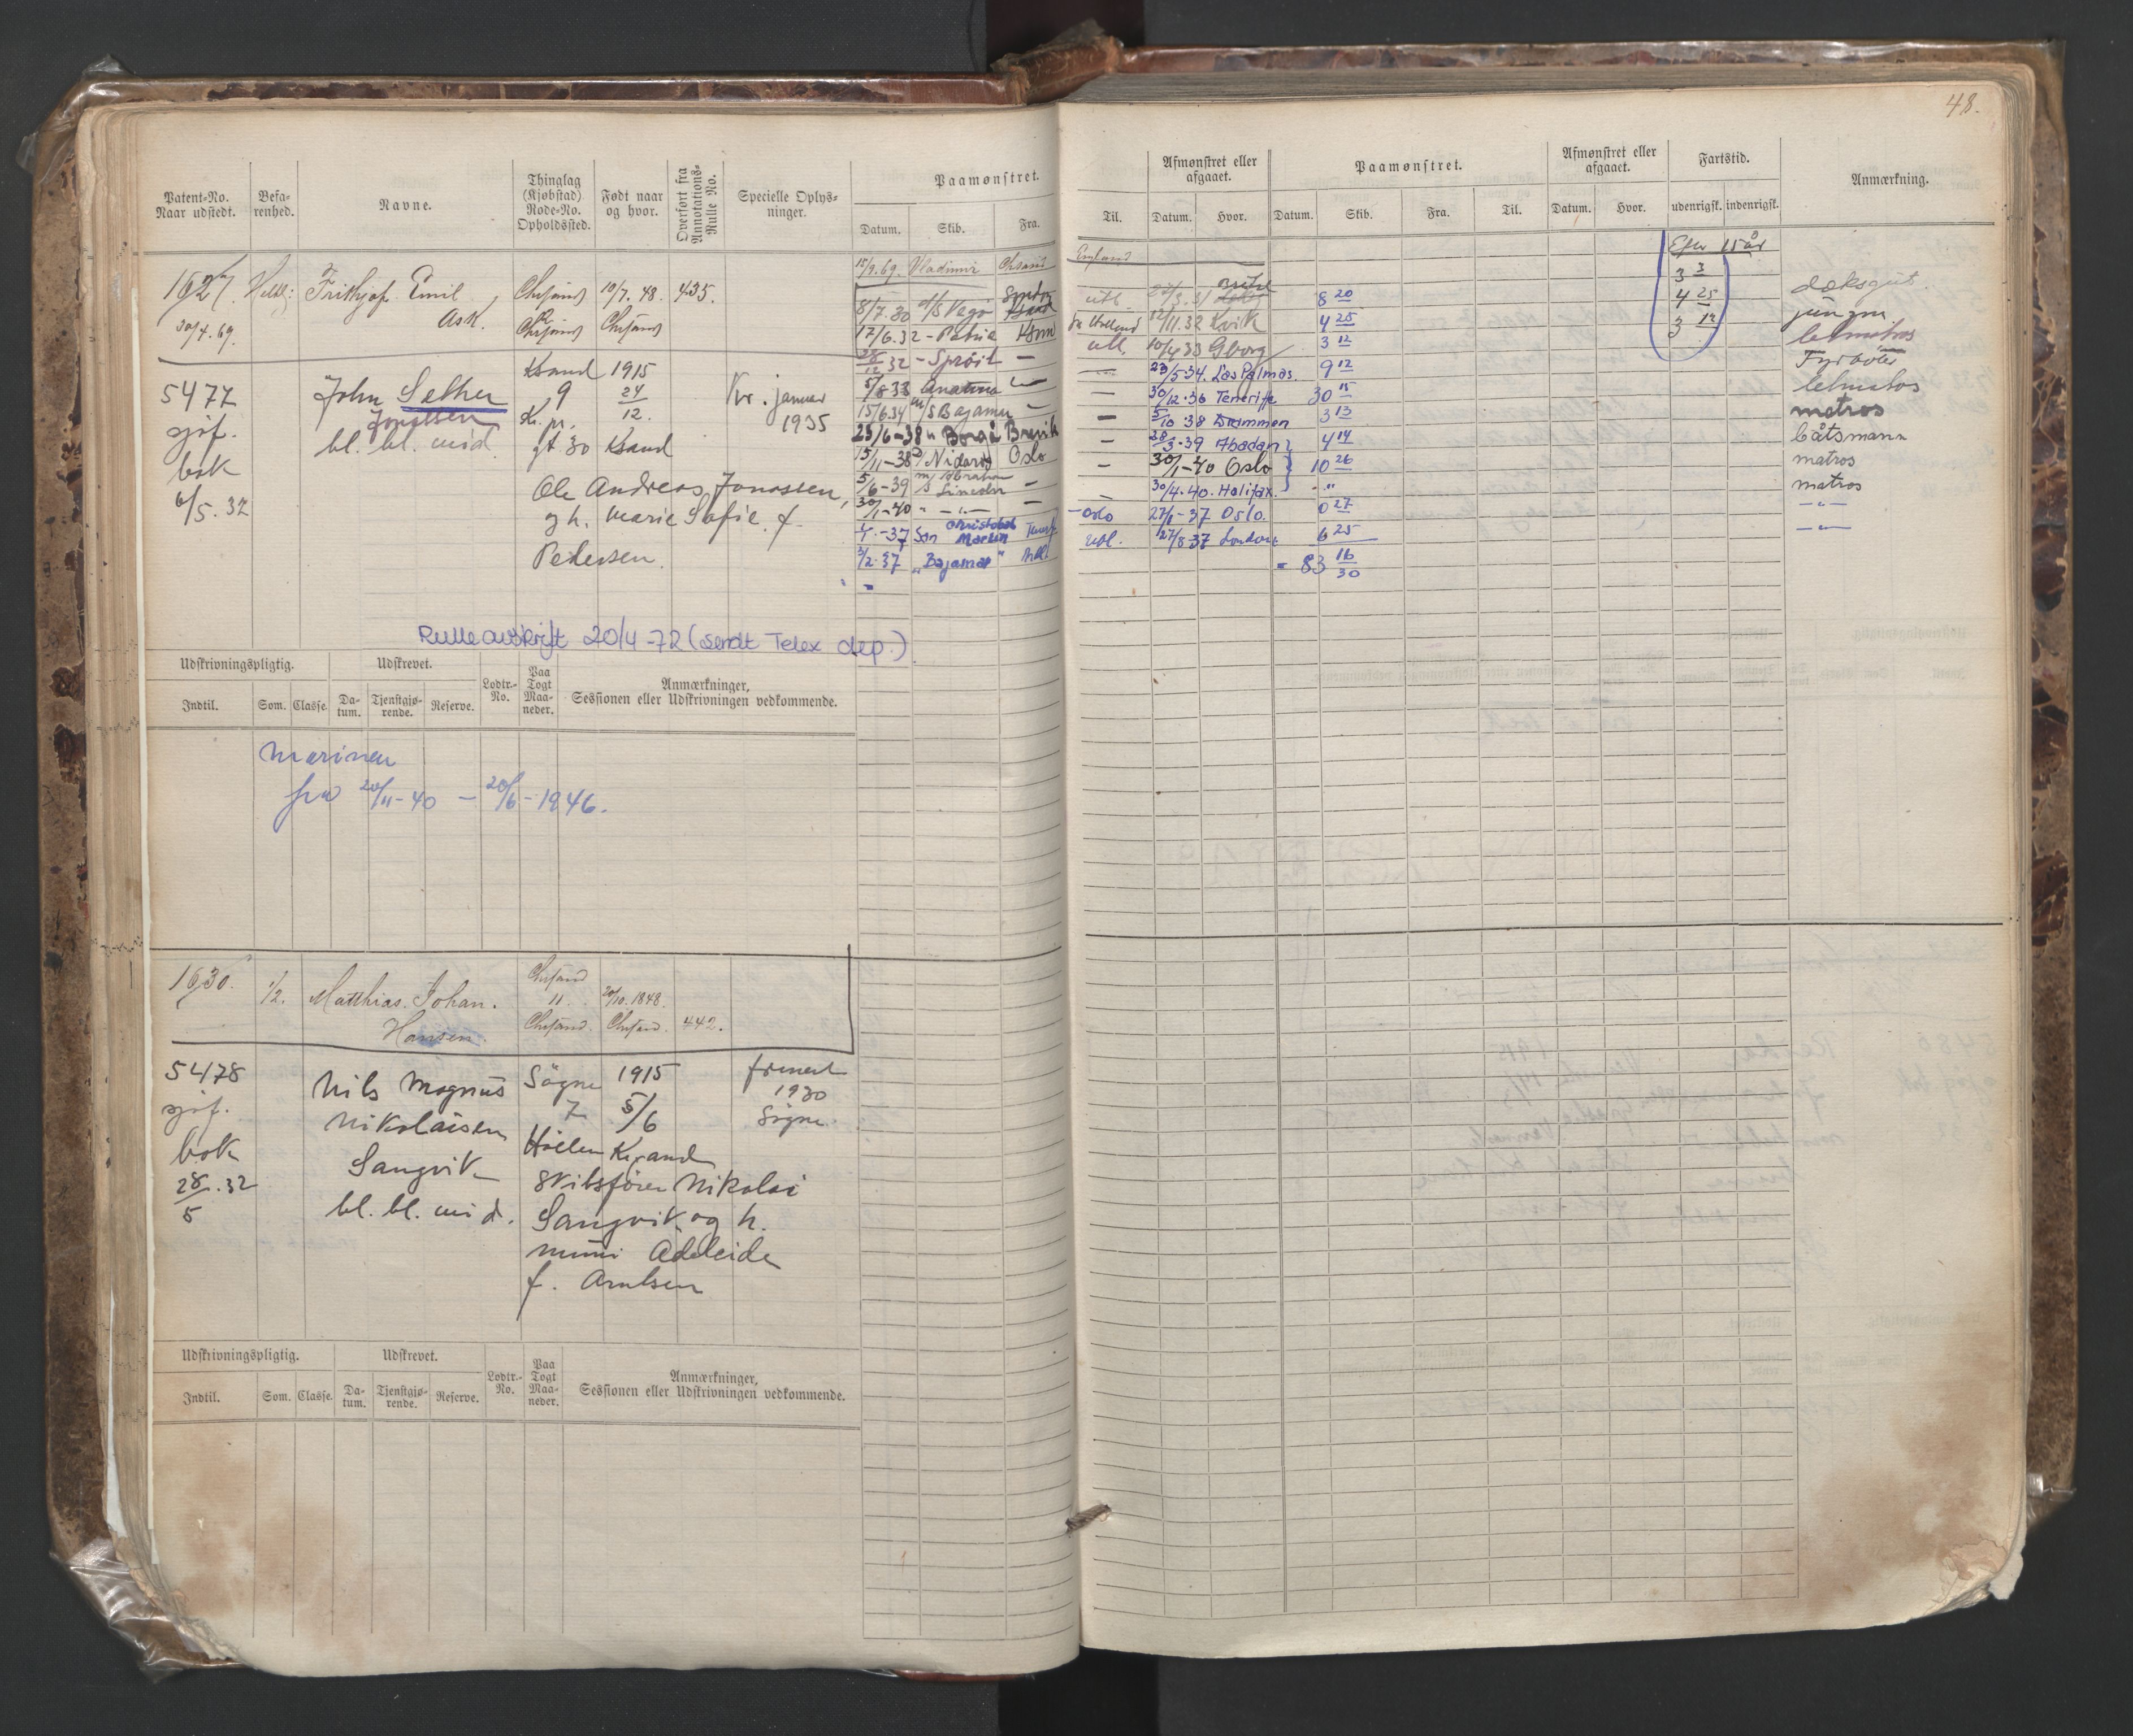 48.
Patent-No. Naar udstedt.
Befarenhed.
Navne.
Thinglag (Kjøbstad) Rode-No. Opholdssted.
Født naar og hvor.
Overført fra Annotations-Rulle No.
Specielle Oplysninger.
Paamønstret.
Datum. Skib. Fra.
Til.
Afmønstret eller afgaaet.
Datum. Hvor.
Paamønstret.
Datum. Skib. Fra. Til.
Afmønstret eller afgaaet.
Datum. Hvor.
Fartstid.
udenrigsk. indenrigsk.
Anmærkning.
1627.
30/4. 69.
Frithjof Emil
Ask.
10/7. 48. 435.
15/9. 69. Vladimir
England
Efter 15 år
3 3
4 25
3 12
5477
sjöf.
bok
6/5. 32
John Sether
Jonassen
bl. bl. mid.
Ksand 1915
9 24/12.
K. pr.
gt. 30 Ksand
Ole Andreas Jonassen,
og h. Marie Sofie f.
Pedersen.
Kr. januar
1935
8/7. 30 Vegö
utl.
8 20
dæksgut
17/6. 32 - Patria
11. 32 Kvik
4 25
jungm
28/12 32 - Spröit —
utl. 10/4 33 Gborg
3 12
letmatros
5/8 33
— 23/5-34. Las Palmas. 9 12
Fyrböter
15/6.34 m/s Bajamar —
— 30/12-36 Tenerife 30 15
letmatros
25/6-38 " Borgå Brevik
— 5/10 38 Drammen 3 13
matros
15/11-38 Nidaros Oslo
— 28/3-39 Abadan 4 14
båtsmann
5/6-39 m/s Abraham Lincoln —
— 30/1-40 Oslo 10 26
matros
30/1-40 " — " — —
— 30/4.40. Halifax. - "
matros
4/1-37 San Christobal
-Oslo 27/1-37 Oslo. 0 27
— " —
3/2-37 "Bajamar"
utl. 27/8-37 London 6 25
— " —
- 83 16/30
Rulleavskrift 20/4-72 (sendt Telex dep.)
Udskrivningspligtig.
Indtil. Som. Classe.
Udskrevet.
Datum. Tjenstgjørende. Reserve.
Lodtr.-No.
Paa Togt Maaneder.
Anmærkninger,
Sessionen eller Udskrivningen vedkommende.
Marinen
fra 20/11-40 — 20/6-1946.
1630.
1/2.
Matthias Johan.
Hansen
Chrsand
11.
Chrsand.
20/10. 1848.
Chrsand. 442.
5478
sjöf.
bok
28/5.32
Nils Magnus
Nikolaisen
Sangvik
bl. bl. mid.
Sögne 1915
7 5/6
Höllen Kr.sand
Skibsförer Nikolai
Sangvik og h.
Mimi Adeleide
f. Arntsen
fremert
1930
Sögne
Udskrivningspligtig.
Indtil. Som. Classe.
Udskrevet.
Datum. Tjenstgjørende. Reserve.
Lodtr.-No.
Paa Togt Maaneder.
Anmærkninger,
Sessionen eller Udskrivningen vedkommende.